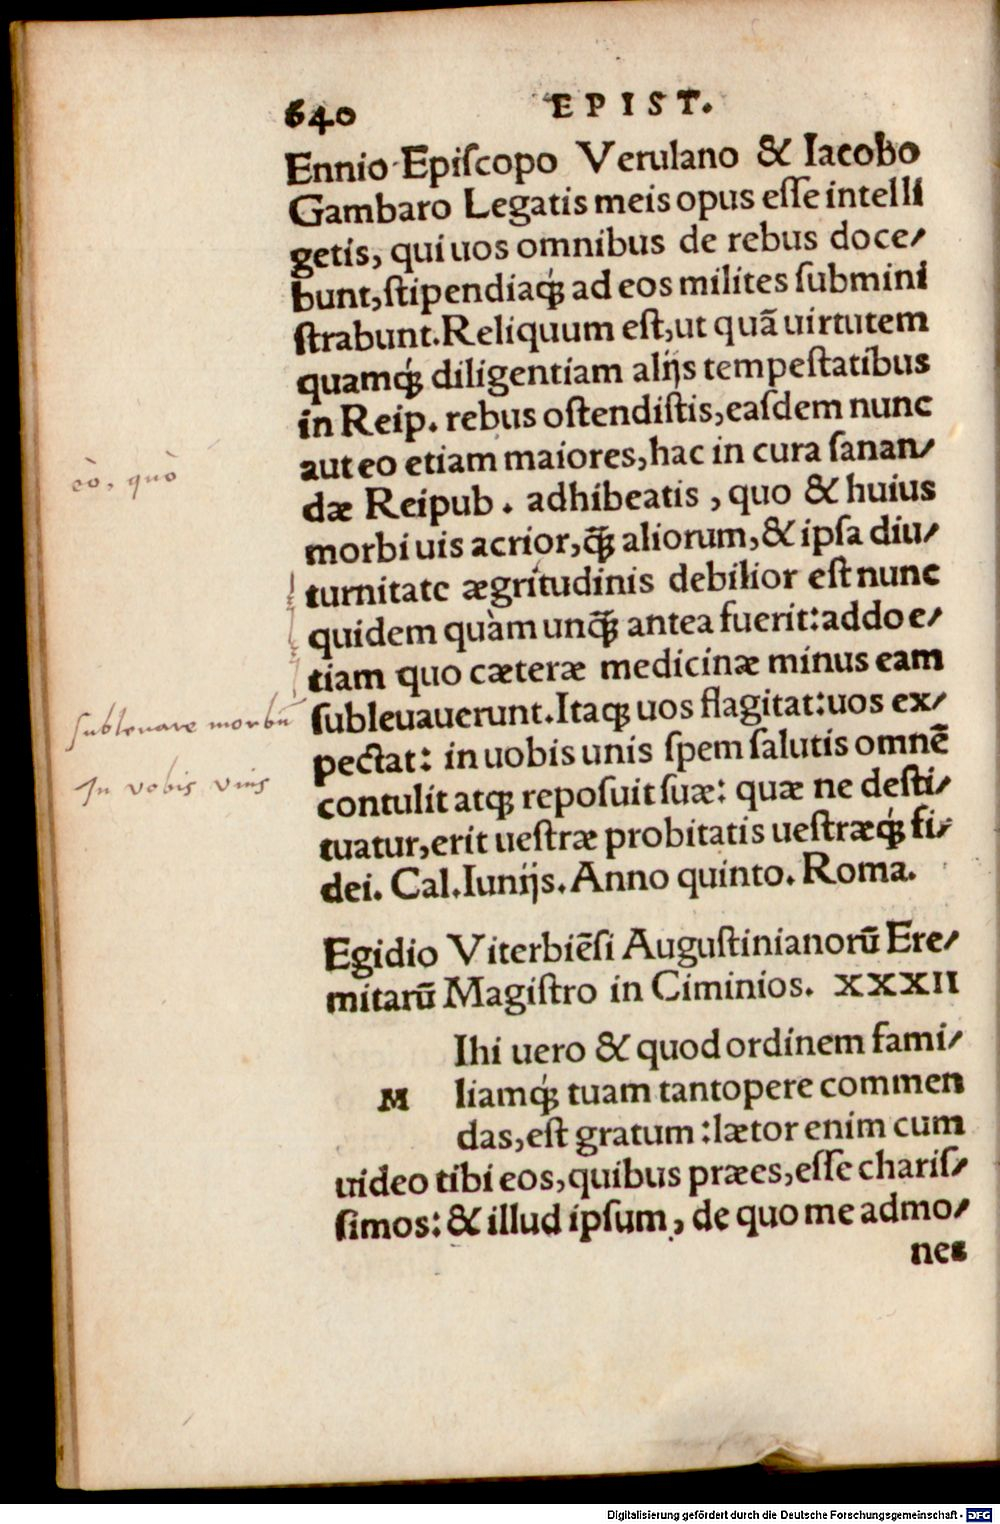 640 EPIST.
Ennio Episcopo Verulano & Iacobo
Gambaro Legatis meis opus eſſe intelli
getis, qui uos omnibus de rebus doce⸗
bunt, ſtipendiaq́; ad eos milites ſubmini
ſtrabunt. Reliquum eſt, ut quā uirtutem
quamq́; diligentiam alijs tempeſtatibus
in Reip. rebus oſtendiſtis, eaſdem nunc
aut eo etiam maiores, hac in cura ſanan⸗
dæ Reipub. adhibeatis, quo & huius
eò, quò
morbi uis acrior, q̃; aliorum, & ipſa diu⸗
turnitate ægritudinis debilior eſt nunc
quidem quàm unq̃; antea fuerit: addo e⸗
tiam quo cæteræ medicinæ minus eam
ſubleuauerunt. Itaq; uos flagitat: uos ex⸗
subleuare morbū
pectat: in uobis unis ſpem ſalutis omnẽ
In vobis vnis
contulit atq; repoſuit ſuæ: quæ ne deſti⸗
tuatur, erit ueſtræ probitatis ueſtræq́; fi⸗
dei. Cal. Iunijs. Anno quinto. Roma.
Egidio Viterbiẽſi Auguſtinianorũ Ere⸗
mitarũ Magiſtro in Ciminios. XXXII
M Ihi uero & quod ordinem fami⸗
liamq́; tuam tantopere commen
das, eſt gratum: lætor enim cum
uideo tibi eos, quibus præes, eſſe chariſ⸗
ſimos: & illud ipſum, de quo me admo⸗
nes
Digitalisierung gefördert durch die Deutsche Forschungsgemeinschaft - DFG